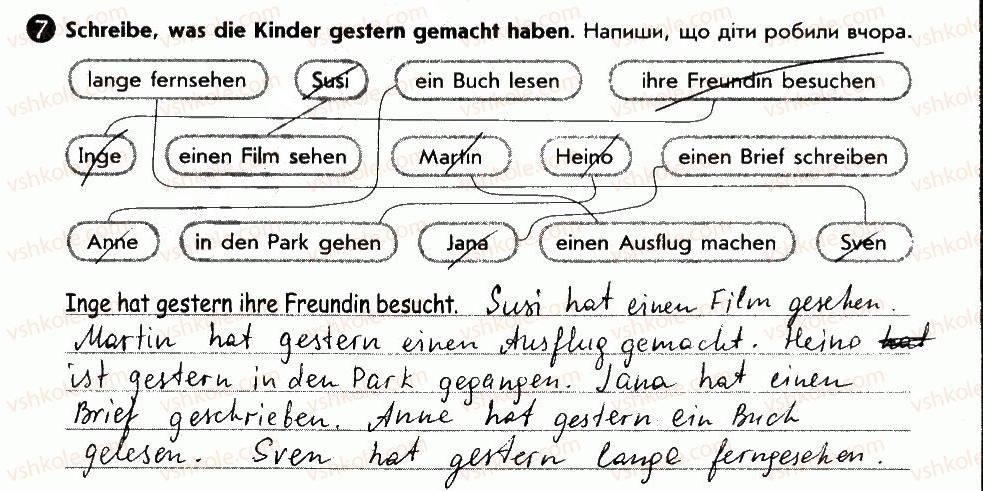 7 Schreibe, was die Kinder gestern gemacht haben. Напиши, що діти робили вчора.
lange fernsehen Susi ein Buch lesen ihre Freundin besuchen
Inge einen Film sehen Martin Heino einen Brief schreiben
Anne in den Park gehen Jana einen Ausflug machen Sven
Inge hat gestern ihre Freundin besucht. Susi hat einen Film gesehen.
Martin hat gestern einen Ausflug gemacht. Heino hat
ist gestern in den Park gegangen. Jana hat einen
Brief geschrieben. Anne hat gestern ein Buch
gelesen. Sven hat gestern lange ferngesehen.
vshkole.com